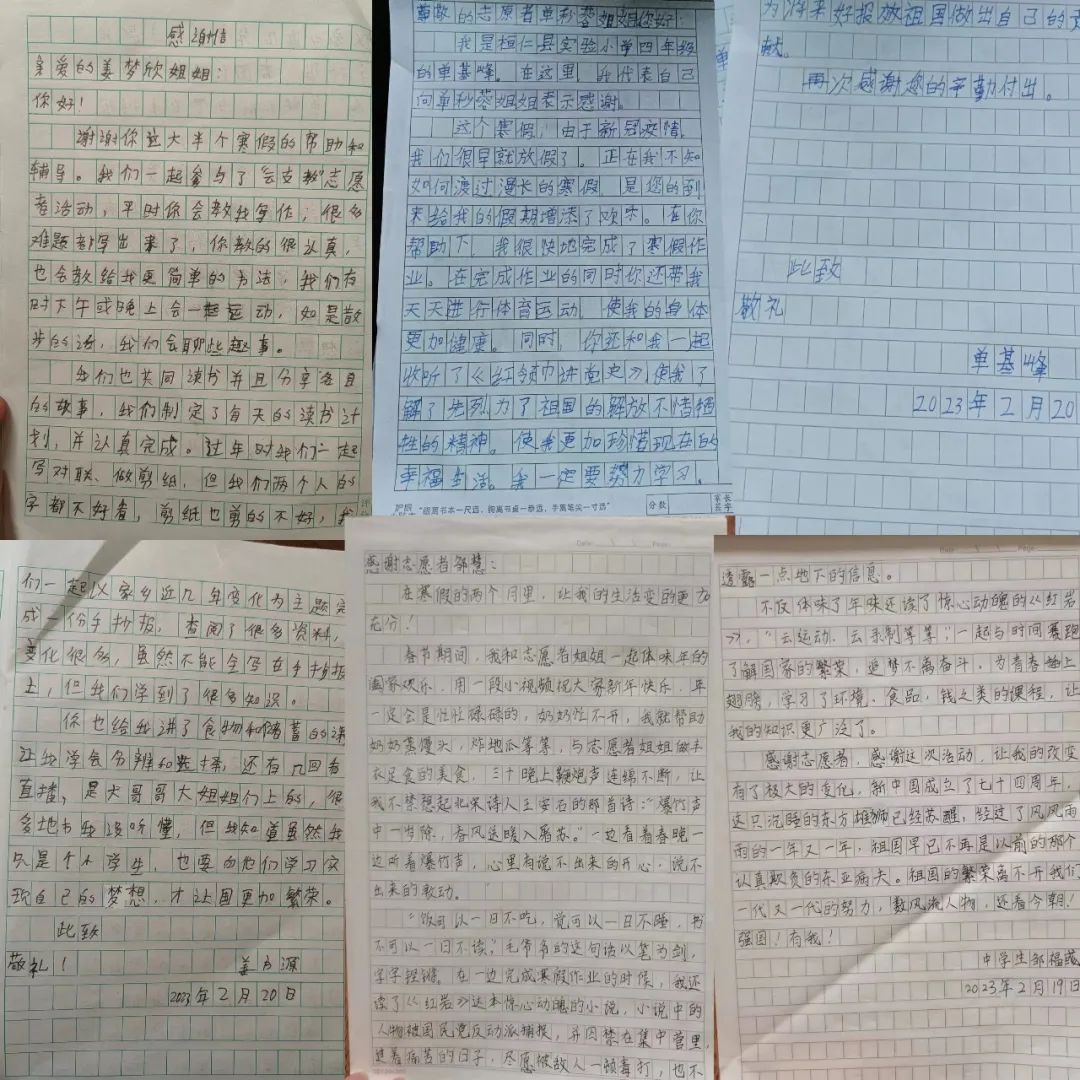 感谢信
亲爱的姜梦欣姐姐：
你好！
谢谢你这大半个寒假的帮助和
辅导。我们一起参与了"云支教"志愿
者活动，平时你会教我写作，很多
难题都写出来了，你教的很认真，
也会教给我更简单的方法，我们有
时下午或晚上会一起运动，如是散
步的话，我们会聊些趣事。
我们也共同读书并且分享各自
的故事，我们制定了每天的读书计
划，并认真完成。过年时我们一起
写对联、做剪纸，但我们两个人的
字都不好看，剪纸也剪的不好，我
们一起以家乡近几年变化为主题完
成一份手抄报，查阅了很多资料，
变化很多，虽然不能全写在手抄报
上，但我们学到了很多知识。
你也给我讲了食物和储蓄的课
让我学会分辨和选择，还有几回看
直播，是大哥哥大姐姐们上的，很
多地方我没听懂，但我知道虽然我
只是个小学生，也要向他们学习实
现自己的梦想，才让国更加繁荣。
此致
敬礼！
姜方源
2023年2月20日
尊敬的志愿者单秒蓉姐姐你好：
我是桓仁县实验小学四年级
的单基峰。在这里，我代表自己
向单秒蓉姐姐表示感谢。
这个寒假，由于新冠疫情，
我们很早就放假了。正在我不知
如何渡过漫长的寒假，是您的到
来给我的假期增添了欢乐。在你
帮助下，我很快地完成了寒假作
业。在完成作业的同时你还带我
天天进行体育运动，使我的身体
更加健康。同时，你还和我一起
收听了《红领巾讲党史》，使我了
解了先烈为了祖国的解放不惜牺
牲的精神。使我更加珍惜现在的
幸福生活。我一定要努力学习。
"眼离书本一尺远，胸离书桌一拳远，手离笔尖一寸远"
分数
家长
签字
为将来好报效祖国做出自己的贡
献。
再次感谢您的辛勤付出。
此致
敬礼
单基峰
2023年2月20
感谢志愿者邹慧：
在寒假的两个月里，让我的生活变的更加
充分！
春节期间，我和志愿者姐姐一起体味年的
阖家欢乐，用一段小视频祝大家新年快乐，年
一定会是忙忙碌碌的，奶奶忙不开，我就帮助
奶奶蒸馒头，炸地瓜等等，与志愿者姐姐做丰
衣足食的美食，三十晚上鞭炮声连绵不断，让
我不禁想起北宋诗人王安石的那首诗："爆竹声
中一岁除，春风送暖入屠苏。"一边看着春晚一
边听着爆竹声，心里有说不出来的开心，说不
出来的激动。
"饭可以一日不吃，觉可以一日不睡，书
不可以一日不读，"毛爷爷的这句话以笔为剑，
字字铿锵。在一边完成寒假作业的时候，我还
读了《红岩》这本惊心动魄的小说，小说中的
人物被国民党反动派捕捉，并囚禁在集中营里，
过着痛苦的日子，尽愿被敌人一顿毒打，也不
透露一点地下的信息。
不仅体味了年味还读了惊心动魄的《红岩
》，"云运动、云手制等等"，一起与时间赛跑
了解国家的繁荣，追梦不离奋斗，为青春插上
翅膀，学习了环境、食品、钱之类的课程，让
我的知识更广泛了。
感谢志愿者，感谢这次活动，让我的改变
有了极大的变化，新中国成立了七十四周年，
这只沉睡的东方雄狮已经苏醒，经过了风风雨
雨的一年又一年，祖国早已不再是以前的那个
认真欺负的东亚病夫。祖国的繁荣离不开我们
一代又一代的努力，数风流人物，还看今朝！
强国！有我！
中学生邹福
2023年2月19日